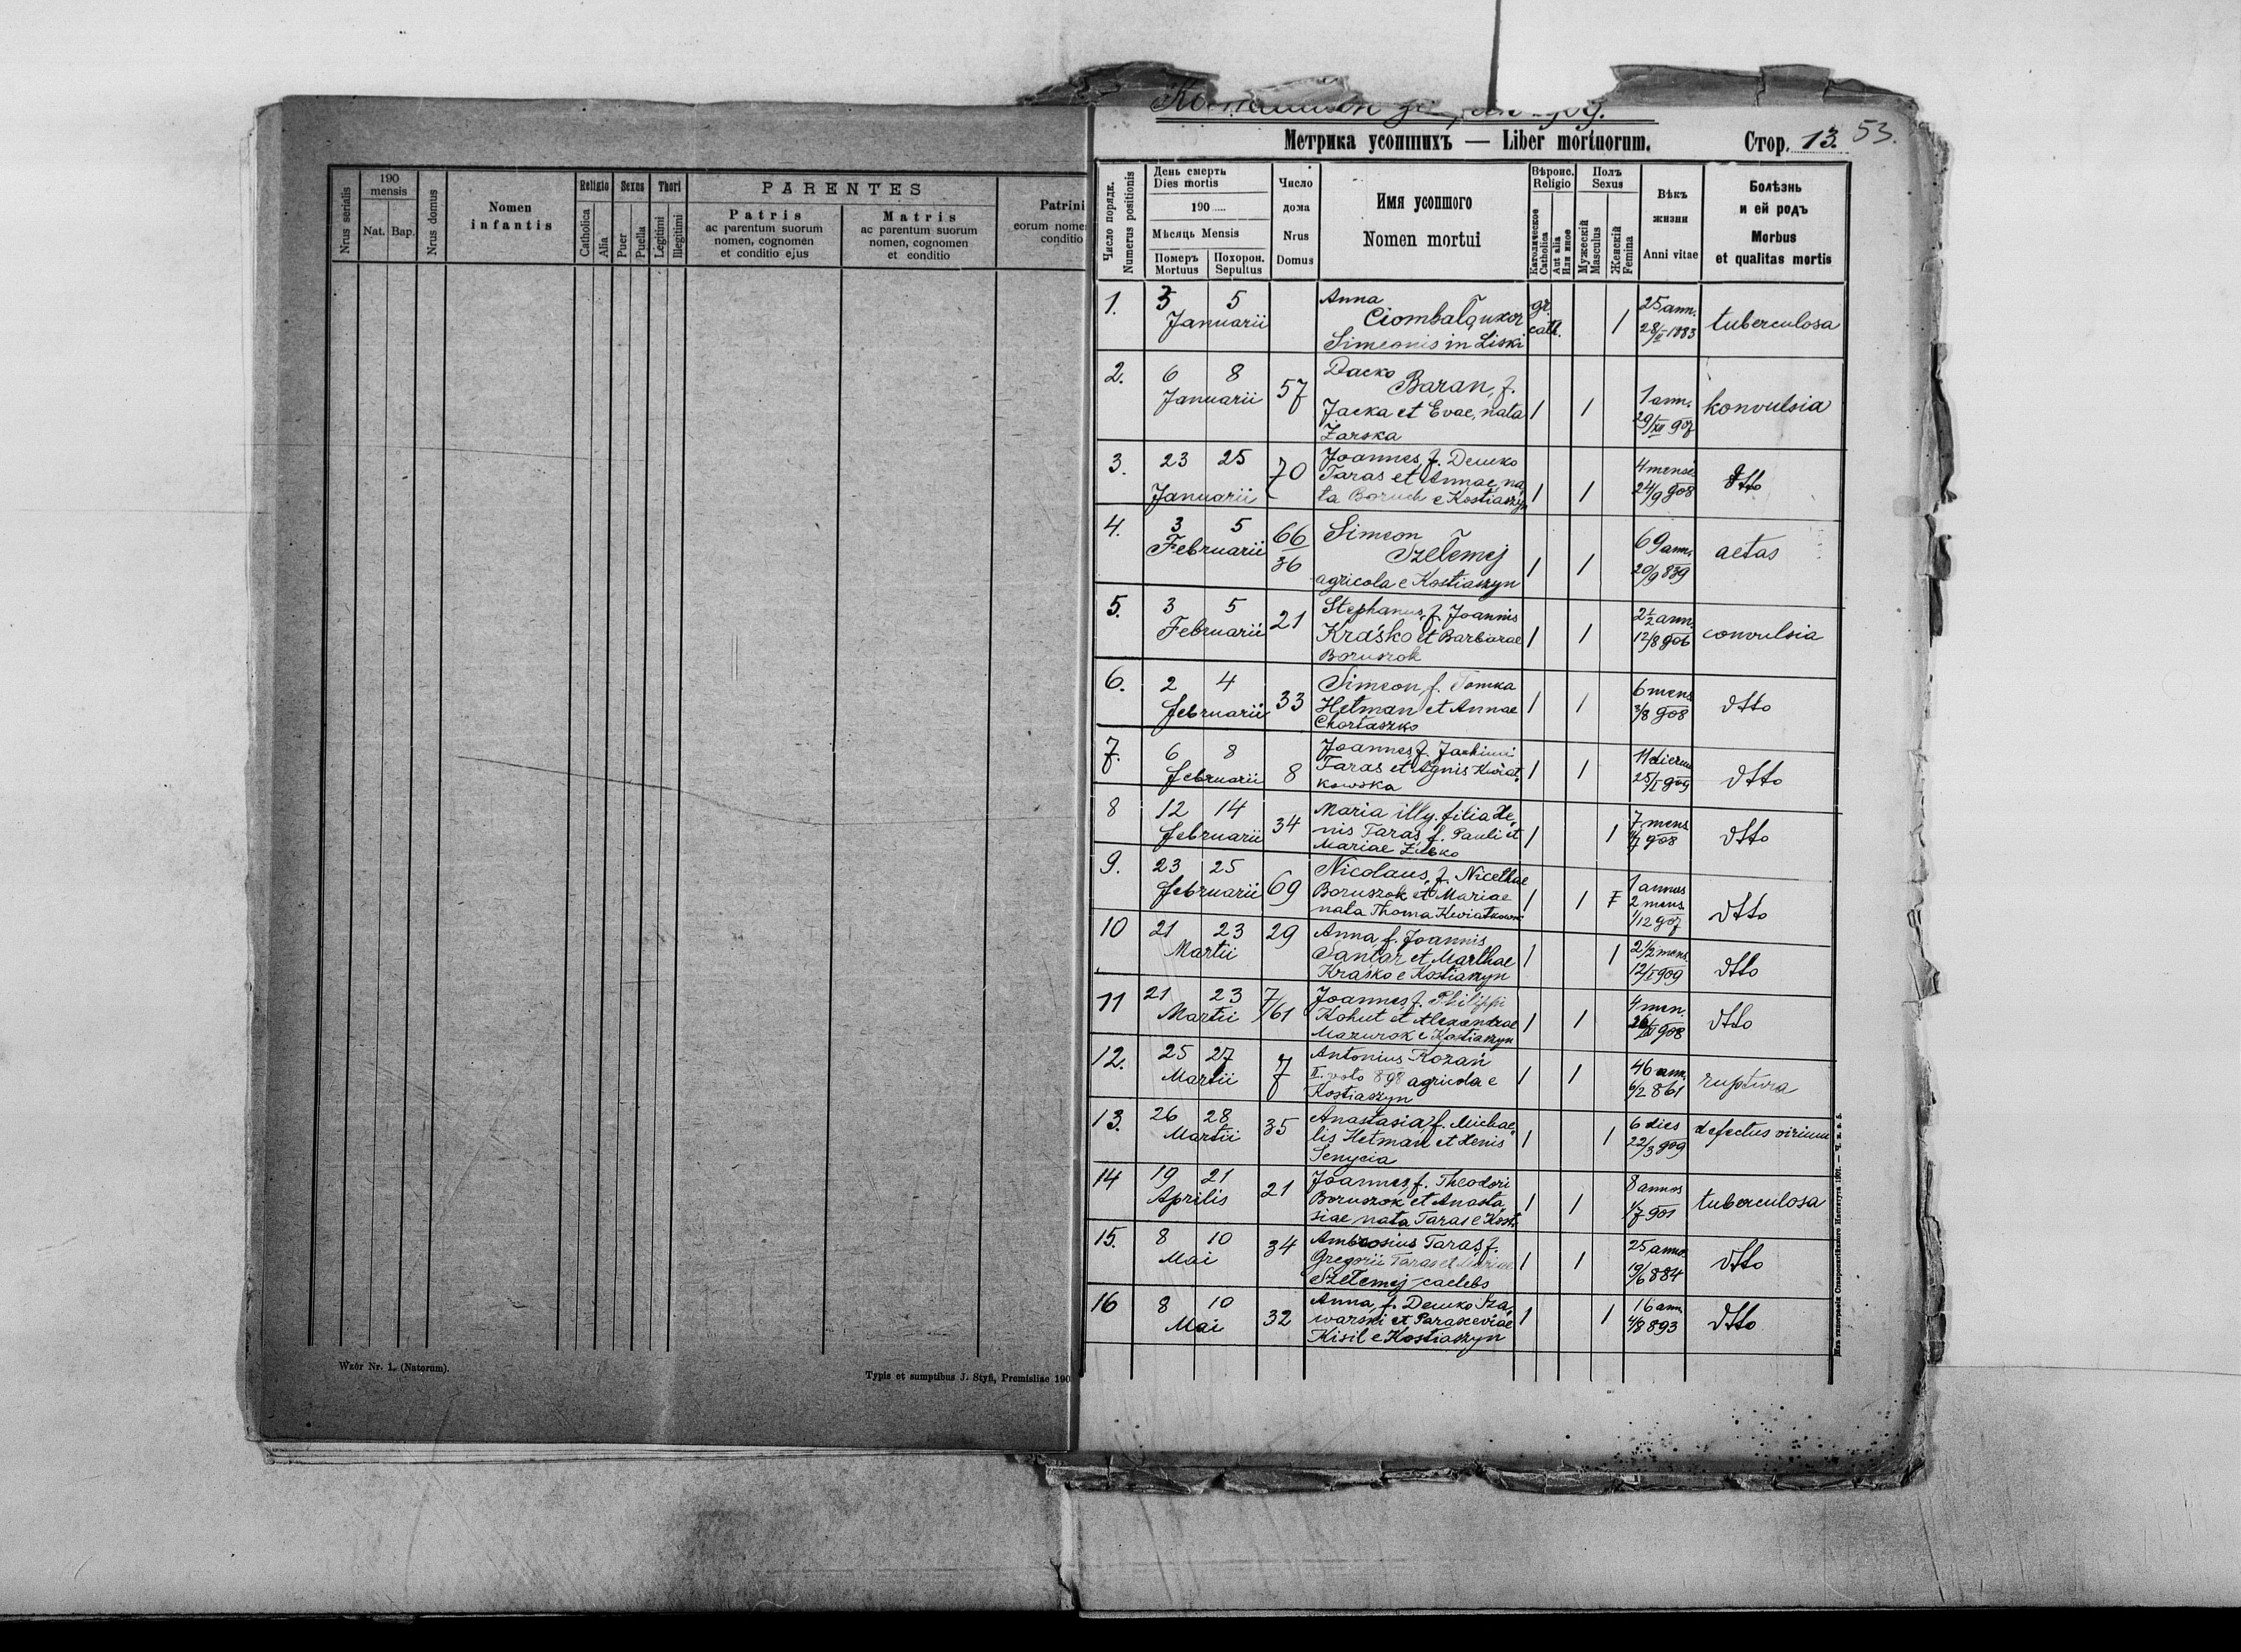 Nrus serialis
190
mensis
Nat.
Bap.
Nrus domus
Nomen
infantis
Religio
Catholica
Alia
Sexus
Puer
Puella
Thori
Legitimi
Illegitimi
PARENTES
Patris
ac parentum suorum
nomen, cognomen
et conditio ejus
Matris
ac parentum suorum
nomen, cognomen
et conditio
Patrini
eorum nome
conditio
Wzór Nr. 1. (Natorum).
Typis et sumptibus J. Styfi, Premisliae 190
Метрика усопшихъ — Liber mortuorum.
Стор. 13. 53.
Число порядк.
Numerus positionis
День смерть
Dies mortis
190
Мѣсяць Mensis
Померъ
Mortuus
Похорон.
Sepultus
Число
дома
Nrus
Domus
Имя усопшого
Nomen mortui
Вѣроис.
Religio
Католическое
Catholica
Aut alia
Или иное
Полъ
Sexus
Мужескій
Masculus
Женскій
Femina
Вѣкъ
жизни
Anni vitae
Болѣзнь
и ей родъ
Morbus
et qualitas mortis
1. 3 5 Anna gr. 25 ann.
Januarii Ciombała uxor cath. 1 28/II 1883 tuberculosa
Simeonis in Liski
2. 6 8 57 Dacko
Januarii Baran, f. 1 ann.
Jacka et Evae, nata 1 1 29/XII 907 konvulsia
Żarska
3. 23 25 70 Joannes f. Demko 4 mens.
Januarii Taras et Annae, na- 24/9 908 dtto
ta Boruch e Kostiaszyn 1 1
4. 3 5 66/36 Simeon 69 ann.
Februarii Szełemej 1 1 20/9 839 aetas
agricola e Kostiaszyn
5. 3 5 21 Stephanus, f. Joannis 2 1/2 ann.
Februarii Kraśko et Barbarae 1 1 12/8 906 convulsia
Boruszok
6. 2 4 33 Simeon, f. Tomka 6 mens.
februarii Hetman et Annae 1 1 3/8 908 dtto
Chortaszko
7. 6 8 8 Joannes, f. Jachimi 11 dierum
februarii Taras et Agnis Kwiat- 1 1 25/I 909 dtto
kowska
8 12 14 34 Maria illg. filia Xe- 7 mens.
februarii nis Taras f. Pauli et 1 1 908 dtto
Mariae
9. 23 25 69 Nicolaus, f. Nicethae 1 annus
februarii Boruszok et Mariae 1 1 2 mens. dtto
nata Thoma Kwiatkowski 1/12 907
10 21 23 29 Anna, f. Joannis 2 1/2 mens.
Martii Santar et Marthae 1 1 12/I 909 dtto
Kraśko e Kostiaszyn
11 21 23 7/61 Joannes, f. Philippi 4 men.
Martii Kohut et Alexandrae 1 1 908 dtto
Mazurok e Kostiaszyn
12. 25 27 7 Antonius Kozań 46 ann.
Martii II. voto 898 agricola e 1 1 6/2 861 ruptura
Kostiaszyn
13. 26 28 35 Anastasia, f. Michae- 6 dies
Martii lis Hetman et Xenis 1 1 22/3 909 defectus virium
Senycia
14 19 21 21 Joannes, f. Theodori 8 annos
Aprilis Boruszok et Anasta- 1 1 1/7 901 tuberculosa
siae nata Taras e Kost.
15. 8 10 34 Ambrosius Taras, f. 25 anno.
Mai Gregorii Taras et Mariae 1 1 19/6 884 dtto
Szełemej caelebs
16 8 10 32 Anna, f. Demko Sza- 16 ann.
Mai warski et Parasceviae 1 1 4/8 893 dtto
Kisil e Kostiaszyn